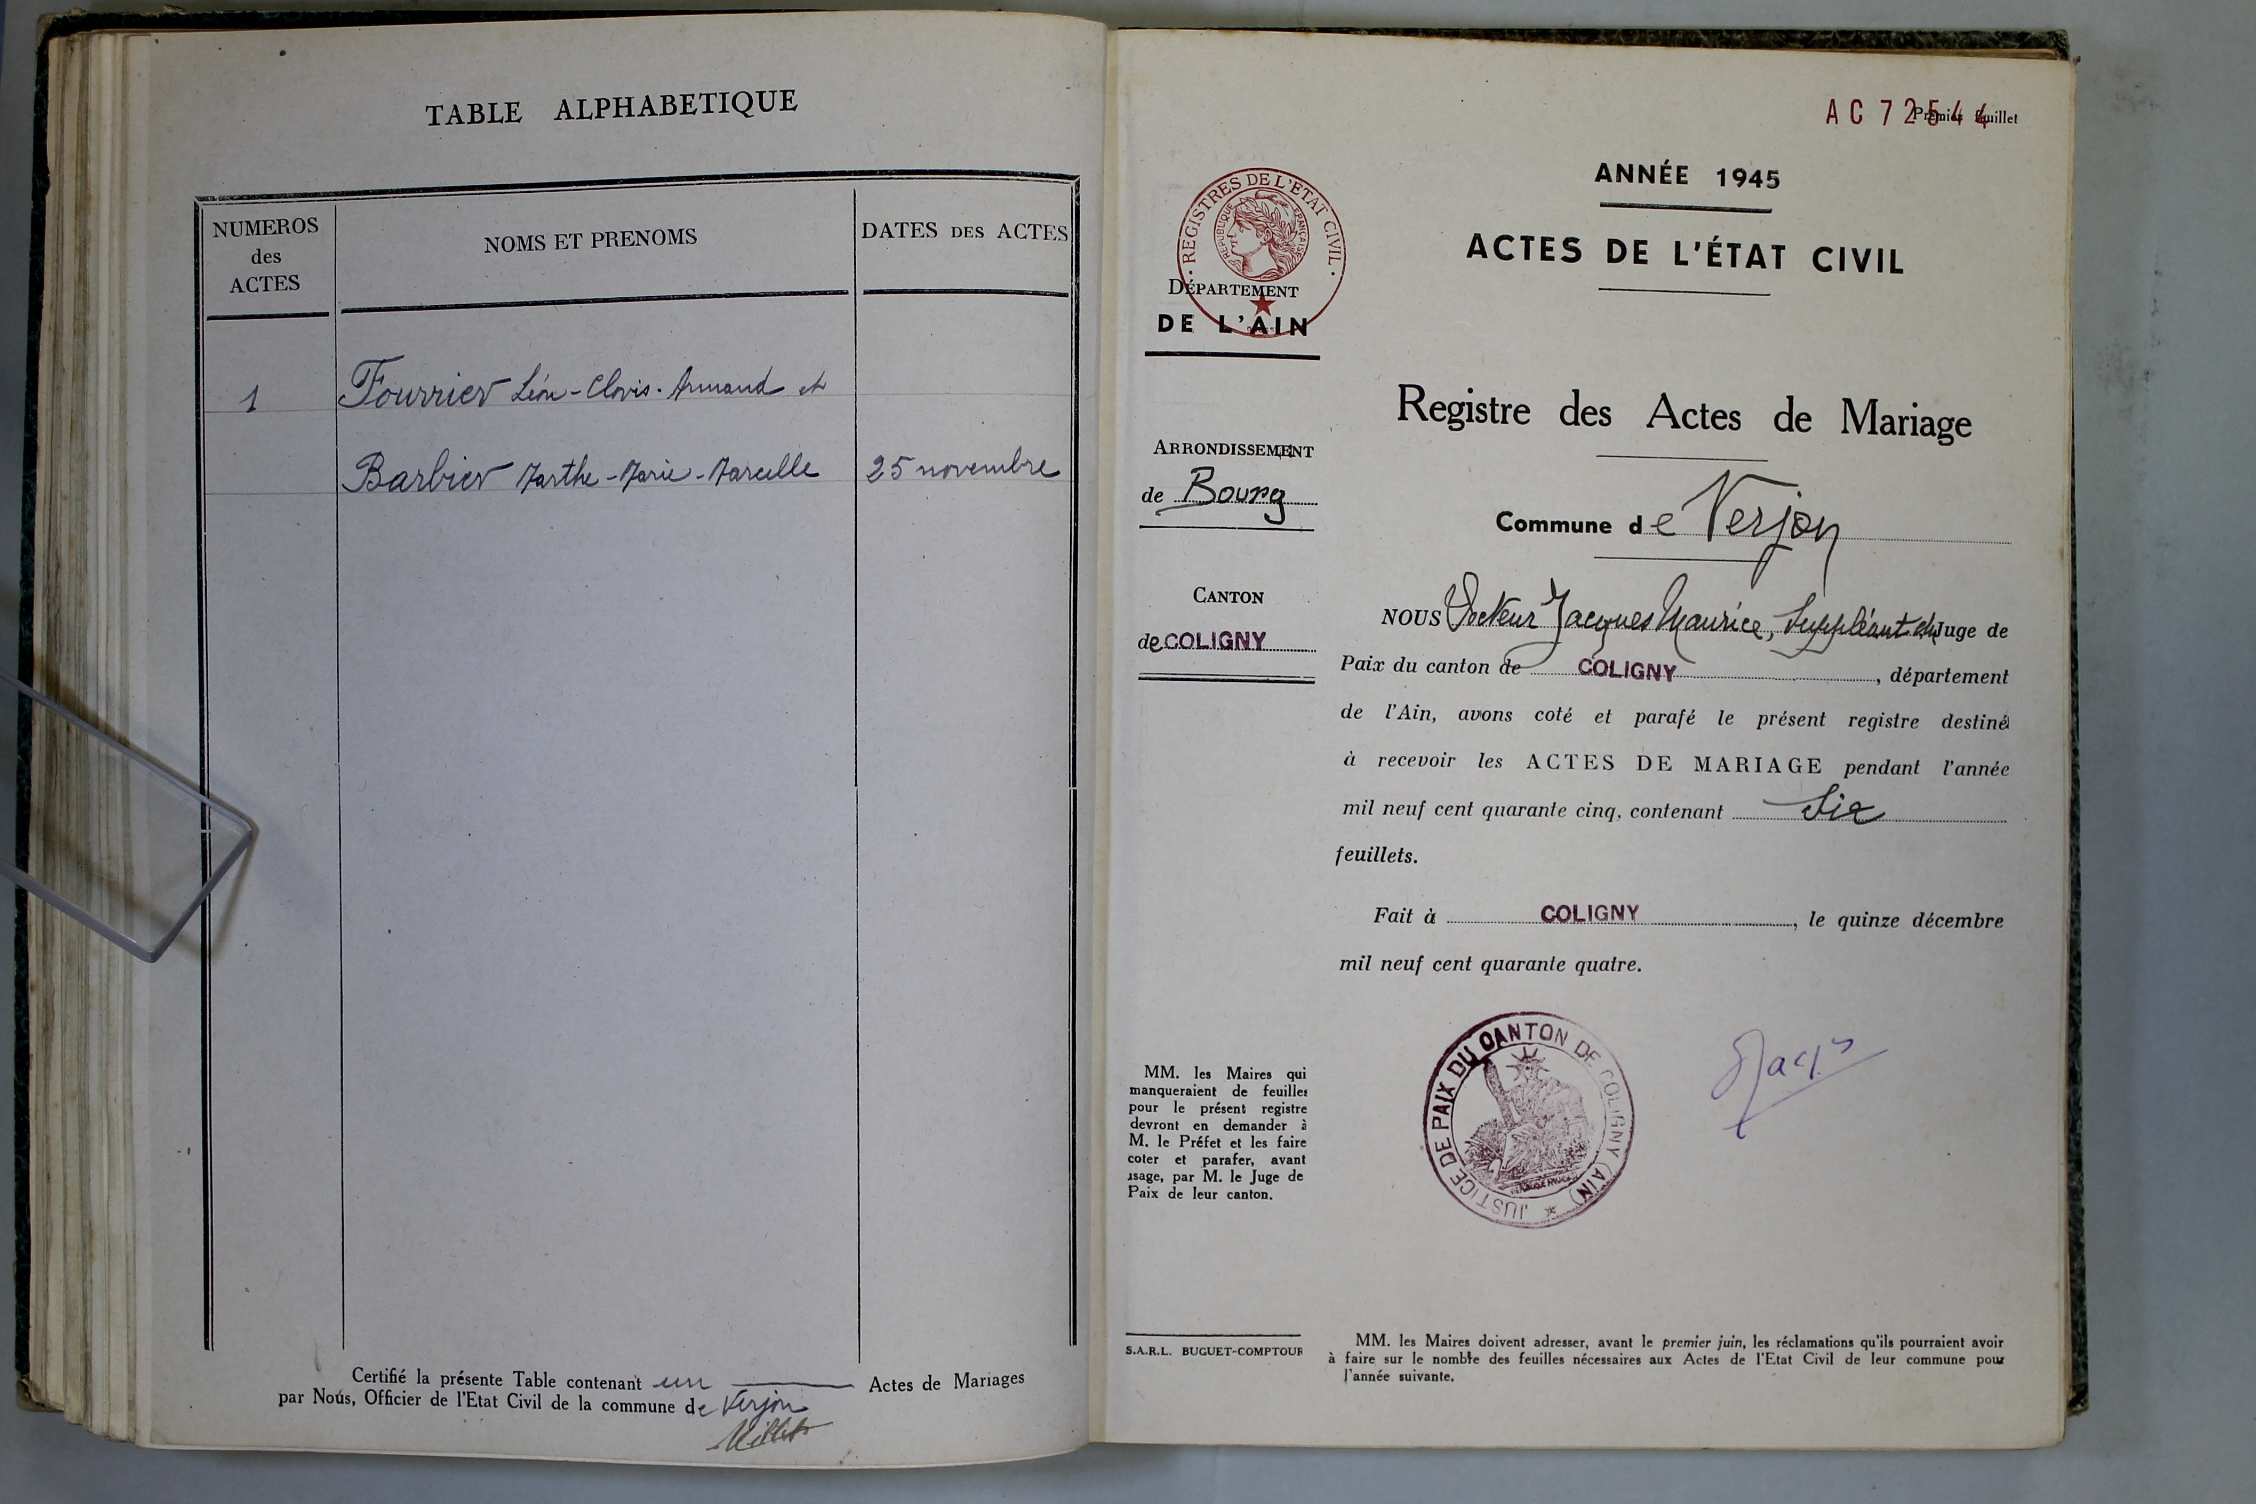 TABLE ALPHABETIQUE
NUMEROS
des
ACTES
NOMS ET PRENOMS
DATES DES ACTES
1
Fourrier Léon-Clovis-Armand et
Barbier Marthe-Marie-Marcelle
25 novembre
Certifié la présente Table contenant un Actes de Mariages
par Nous, Officier de l'Etat Civil de la commune de Verjon
AC 72544
Premier feuillet
REGISTRES DE L'ETAT CIVIL
REPUBLIQUE FRANÇAISE
DÉPARTEMENT
DE L'AIN
ARRONDISSEMENT
de Bourg
CANTON
de COLIGNY
ANNÉE 1945
ACTES DE L'ÉTAT CIVIL
Registre des Actes de Mariage
Commune de Verjon
NOUS Docteur Jacques Maurice, Suppléant du Juge de
Paix du canton de COLIGNY, département
de l'Ain, avons coté et parafé le présent registre destiné
à recevoir les ACTES DE MARIAGE pendant l'année
mil neuf cent quarante cinq, contenant Six
feuillets.
Fait à COLIGNY, le quinze décembre
mil neuf cent quarante quatre.
JUSTICE DE PAIX DU CANTON DE COLIGNY (AIN)
MM. les Maires qui
manqueraient de feuilles
pour le présent registre
devront en demander à
M. le Préfet et les faire
coter et parafer, avant
usage, par M. le Juge de
Paix de leur canton.
S.A.R.L. BUGUET-COMPTOUR
MM. les Maires doivent adresser, avant le premier juin, les réclamations qu'ils pourraient avoir
à faire sur le nombre des feuilles nécessaires aux Actes de l'Etat Civil de leur commune pour
l'année suivante.